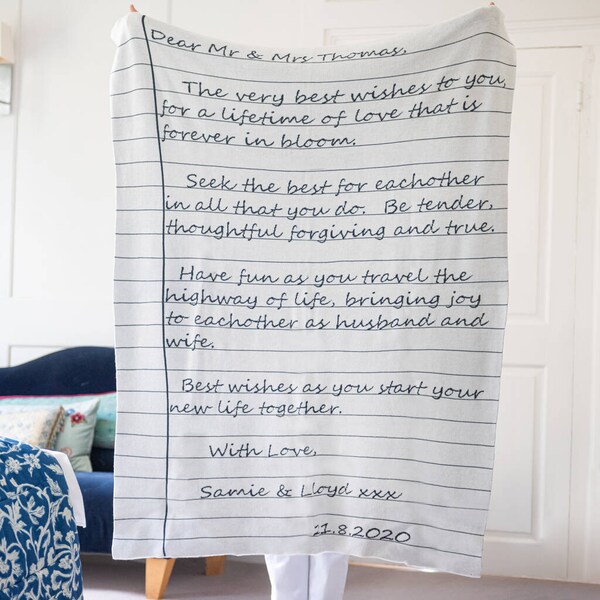 Dear Mr & Mrs Thomas,
The very best wishes to you,
for a lifetime of love that is
forever in bloom.
Seek the best for eachother
in all that you do. Be tender,
thoughtful forgiving and true.
Have fun as you travel the
highway of life, bringing joy
to eachother as husband and
wife.
Best wishes as you start your
new life together.
With Love,
Samie & Lloyd xxx